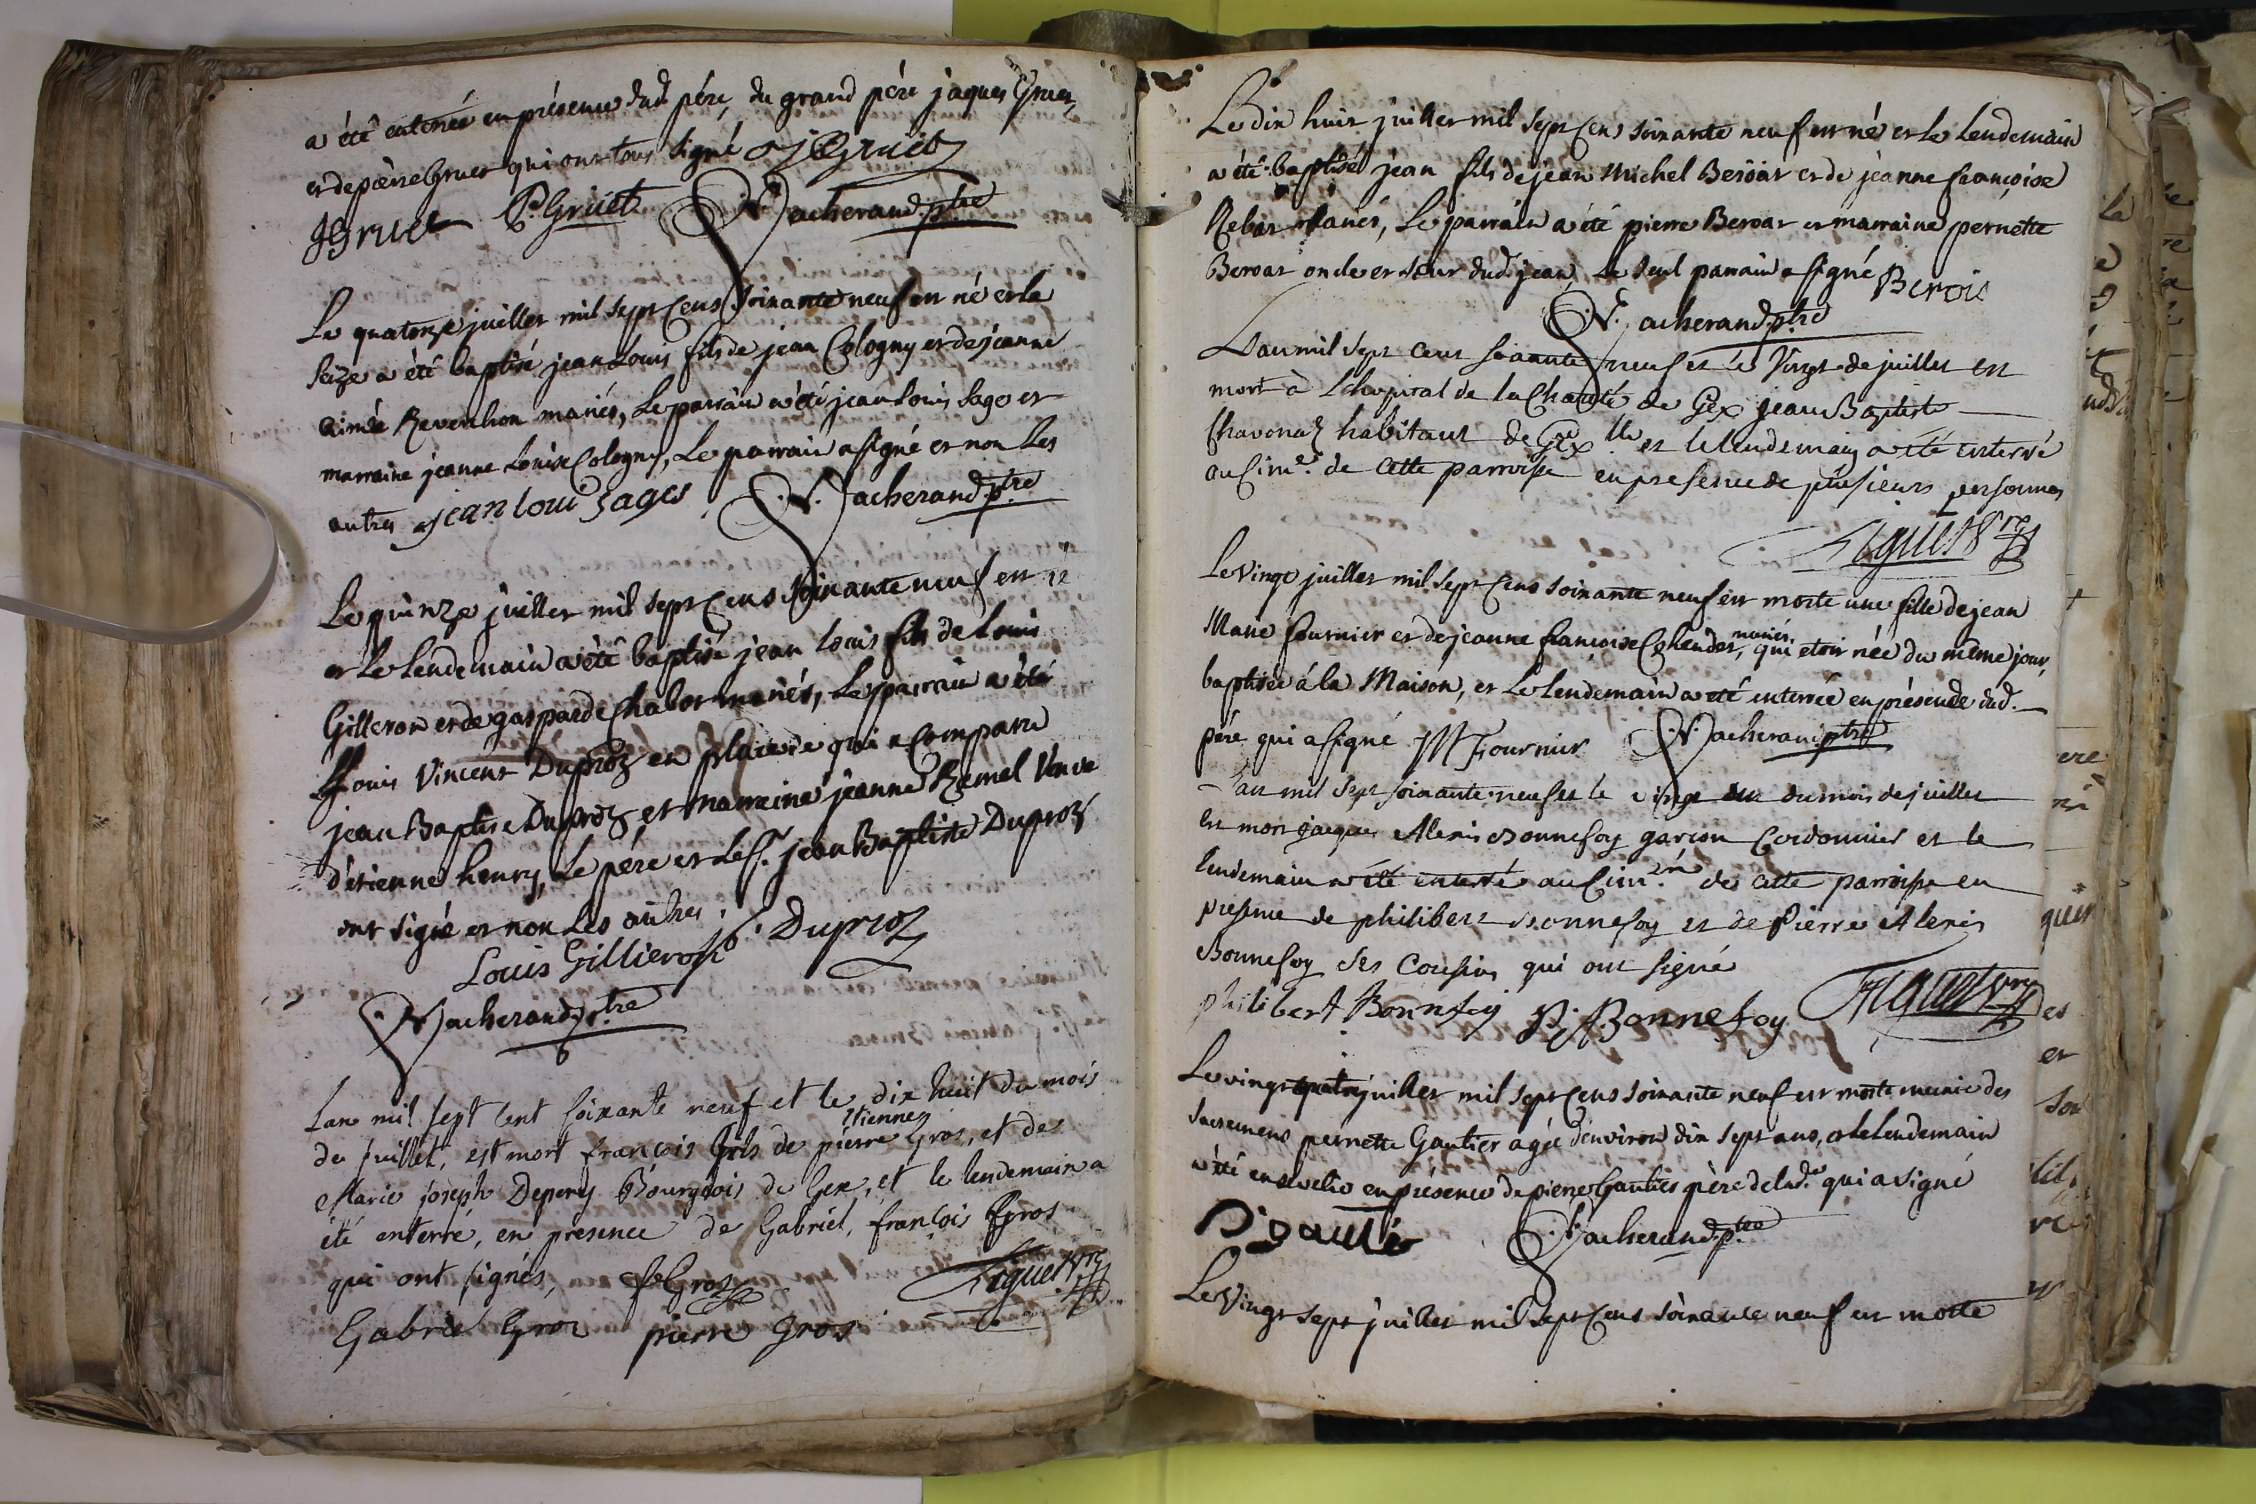 a été enterrée en présence dud. père, du grand père jaques Gruet,
et de pierre Gruet qui ont tous signé J Gruet
JGruet P. Gruet N. Vacherand ptre
Le quatorze juillet mil sept cens soixante neuf est né et le
seize a été baptisé jean Louis fils de jean Cologny et de jeanne
aimée Reverchon mariés, Le parrain a été jean Louis Sage et
marraine jeanne Louise Cologny, Le parrain a signé et non Les
autres jean loui sages N. Vacherand ptre
Le quinze juillet mil sept cens soixante neuf est né
et Le Lendemain a été baptisé jean Louis fils de Louis
Gilleron et de gasparde Chabot mariés, Le parrain a été
Louis Vincent Duproz en place de qui a comparu
jean Baptiste Duproz et marraine jeanne Remel Veuve
d'etienne henry, Le père et Le Sr. jean Baptiste Duproz
ont signé et non Les autres.
Louis Gillieron Duproz
N. Vacherand ptre
Lan mil sept cent soixante neuf et le dix huit du mois
etienne
de juillet, est mort françois fils de pierre Gros, et de
Marie joseph Depery Bourgeois de Gex, et le lendemain a
été enterré, en présence de Gabriel, françois Gros
qui ont signés, f Gros
Gabriel Gros pierre gros
Le dix huit juillet mil sept cens soixante neuf est né et Le Lendemain
a été baptisé jean fils de jean Michel Beroar et de jeanne françoise
mariés, Le parrain a été pierre Beroar et marraine pernette
Beroar oncle et sœur dud. jean, Le seul parrain a signé Beroie
N. Vacherand ptre
L'an mil sept cent soixante neuf et le vingt de juillet est
mort à L'hopital de la Charité de Gex jean Baptiste
Chavonaz habitant de Gex et le lendemain a été enterré
au Cime. de cette parroisse en presence de plusieurs personnes
Le vingt juillet mil sept cens soixante neuf est morte une fille de jean
mariés
Marie fournier et de jeanne françoise, qui étoit née du même jour,
baptisée à la Maison, et Le lendemain a été enterrée en présence dud.
père qui a signé JM Fournier N. Vacherand ptre
L'an mil sept soixante neuf et le vingt du mois de juillet
est mort jacques Alexis Bonnefoy garçon Cordonnier et le
lendemain a été enterré au Cim. de cette parroisse en
presence de philibert Bonnefoy et de Pierre Alexis
Bonnefoy ses Cousins qui ont signé
philibert Bonnefoy P: Bonnefoy
Le vingt quatre juillet mil sept cens soixante neuf est morte munie des
sacremens pernette Gautier agée d'environ dix sept ans, et le Lendemain
a été ensevelie en présence de pierre Gautier père de lad. qui a signé
P gautié N. Vacherand ptre
Le vingt sept juillet mil sept cens soixante neuf est morte